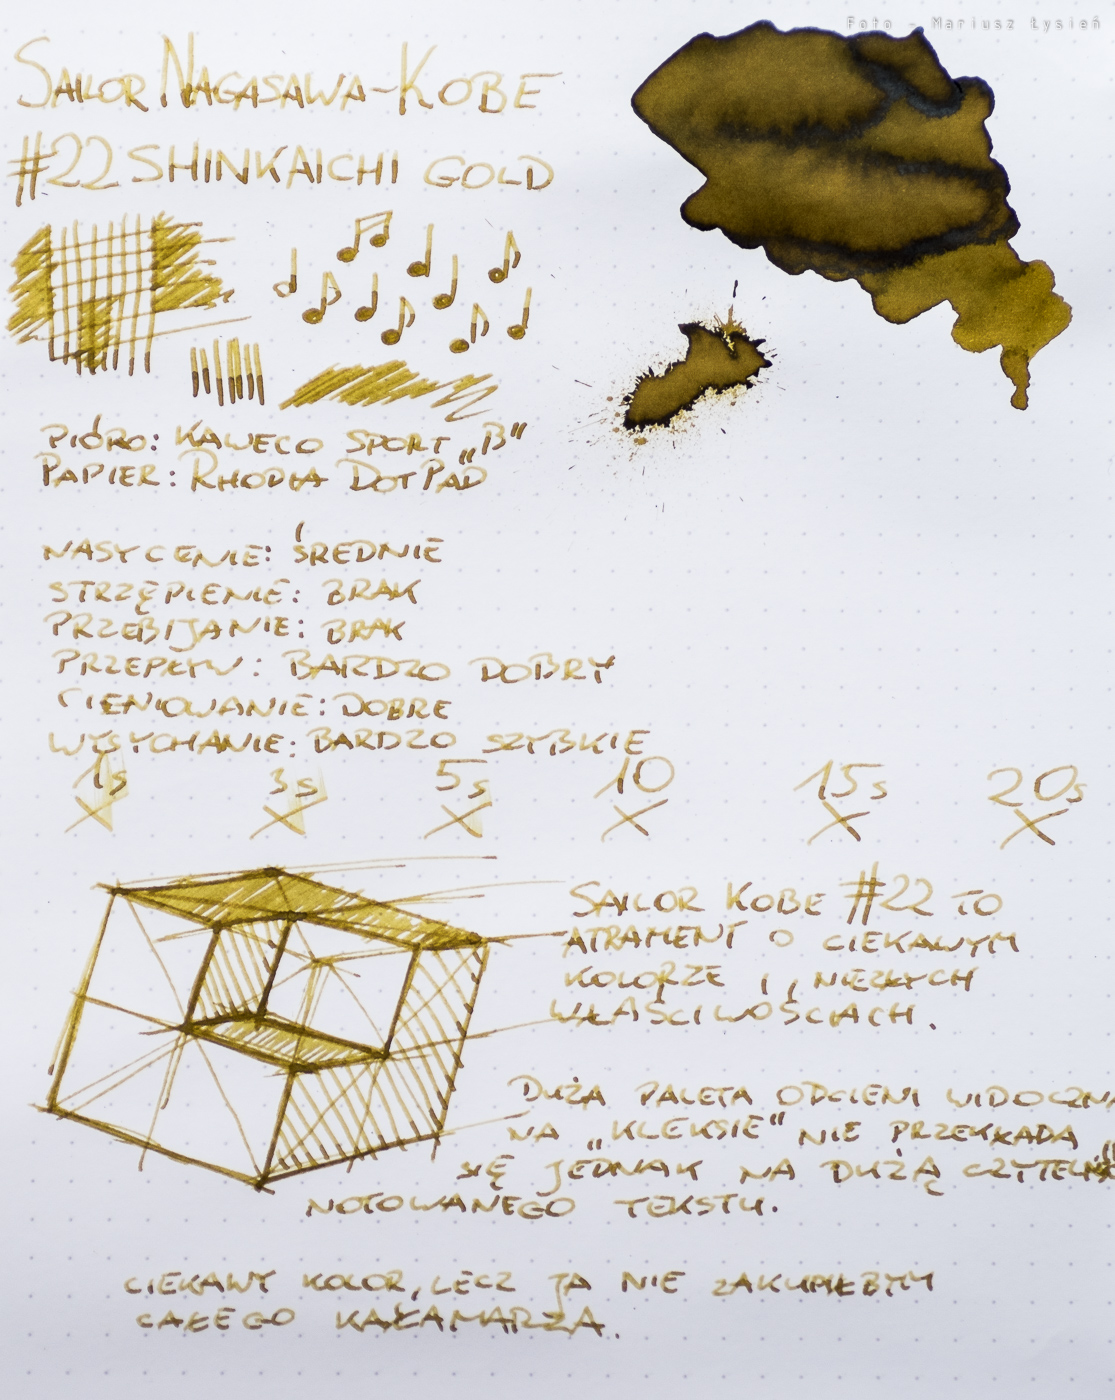 Foto - Mariusz Łysień
SAILOR NAGASAWA-KOBE
#22 SHINKAICHI GOLD
PIÓRO: KAWECO SPORT „B”
PAPIER: RHODIA DOTPAD
NASYCENIE: ŚREDNIE
STRZĘPIENIE: BRAK
PRZEBIJANIE: BRAK
PRZEPŁYW: BARDZO DOBRY
CIENIOWANIE: DOBRE
WYSYCHANIE: BARDZO SZYBKIE
1s 3s 5s 10 15s 20s
SAILOR KOBE #22 TO
ATRAMENT O CIEKAWYM
KOLORZE I NIEZŁYCH
WŁAŚCIWOŚCIACH.
DUŻA PALETA ODCIENI WIDOCZNA
NA „KLEKSIE” NIE PRZEKŁADA
SIĘ JEDNAK NA DUŻĄ
NOTOWANEGO TEKSTU.
CIEKAWY KOLOR, LECZ JA NIE ZAKUPIŁBYM
CAŁEGO KAŁAMARZA.